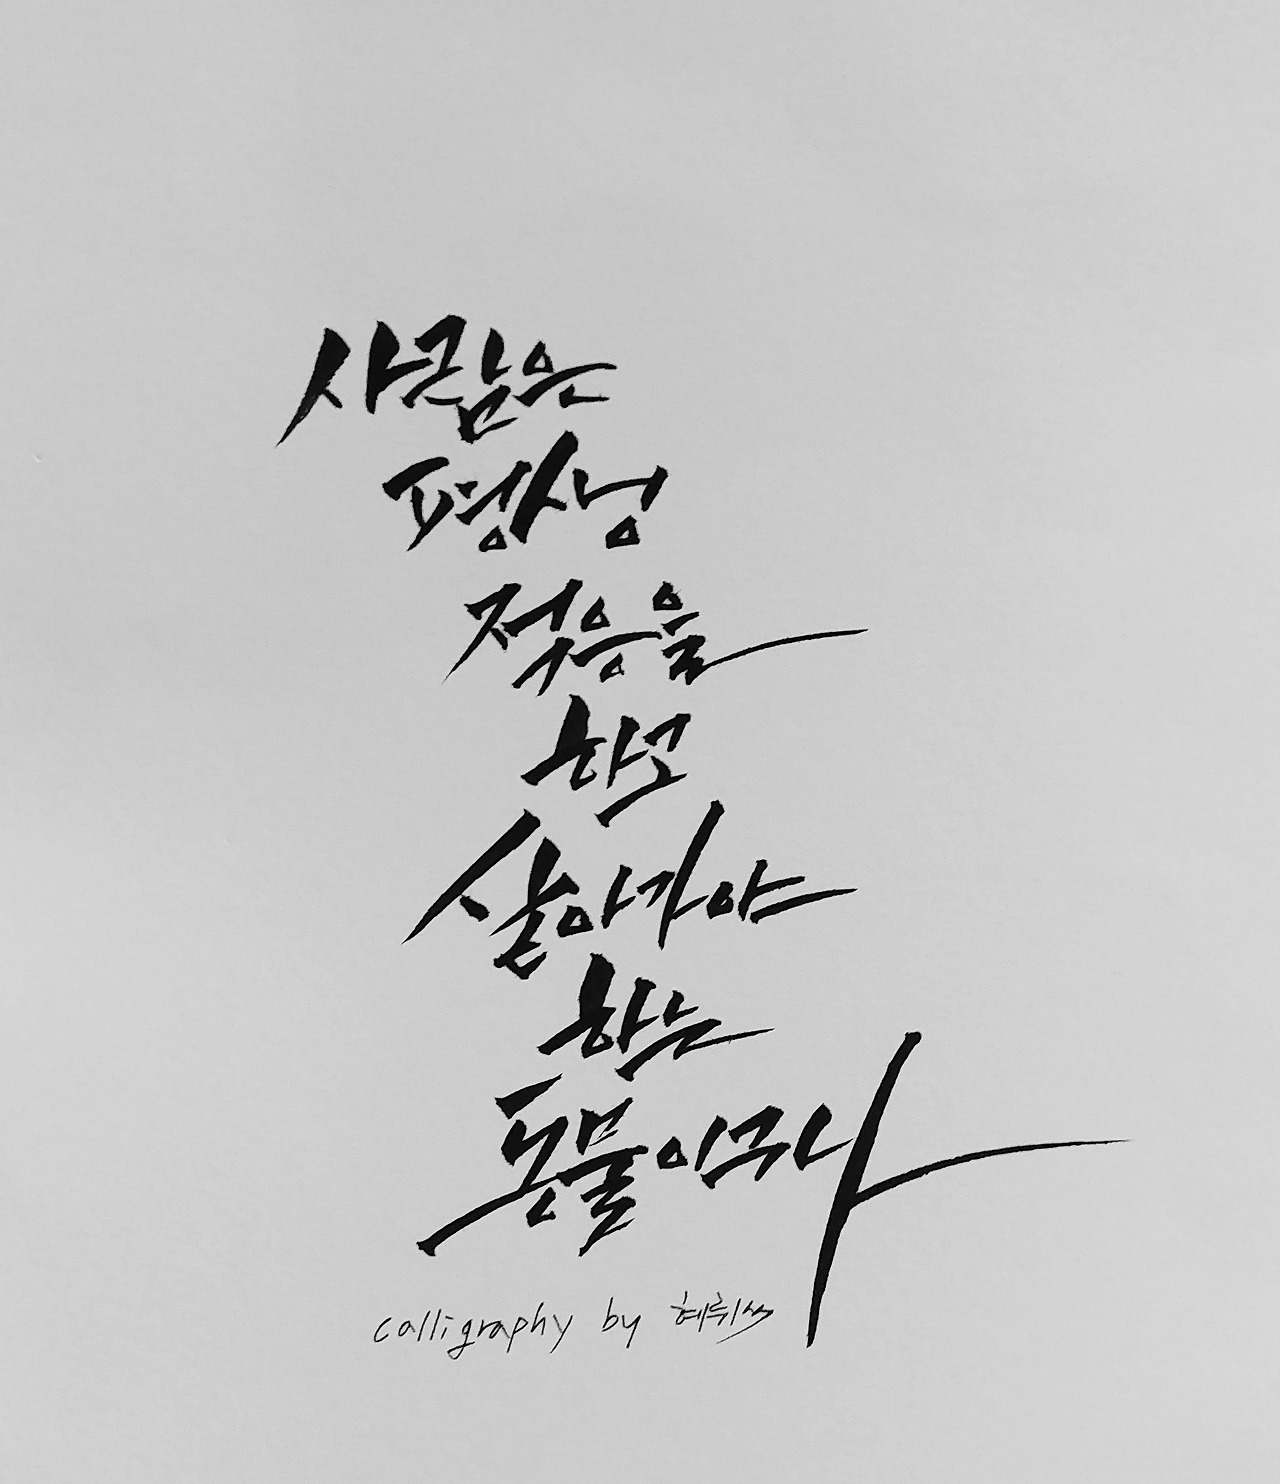 사람은
평생
적응을
하고
살아가야
하는
동물이구나
calligraphy by